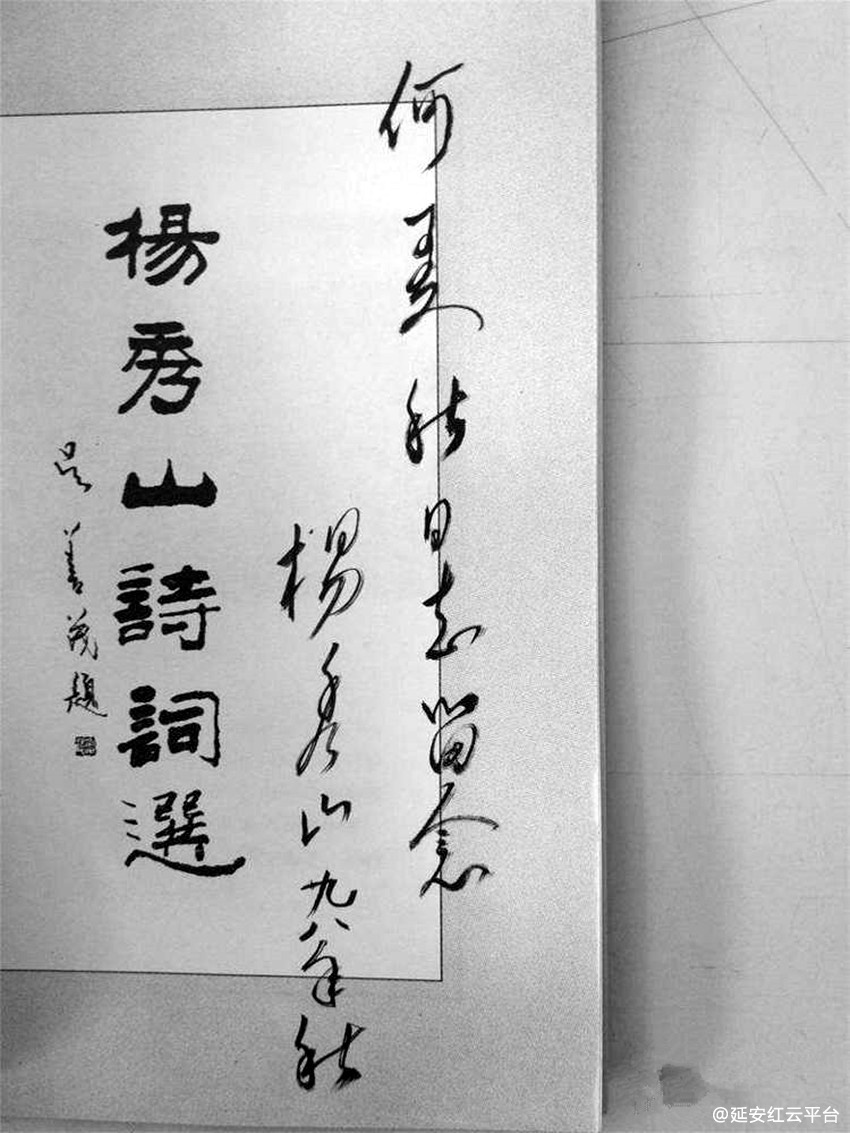 何美秋同志留念
楊秀山九八年秋
楊秀山詩詞選
吴善茂題
@延安红云平台